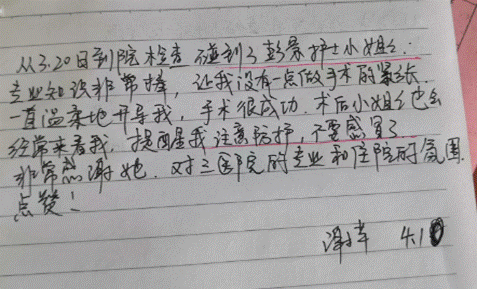 从3.20日到院检查 碰到了彭景护士小姐姐.
专业知识非常棒, 让我没有一点做手术的紧张.
一直温柔地开导我, 手术很成功. 术后小姐姐也会
经常来看我, 提醒我注意防护, 不要感冒了
非常感谢她. 对三医院的专业和住院的氛围
点赞!
4.10